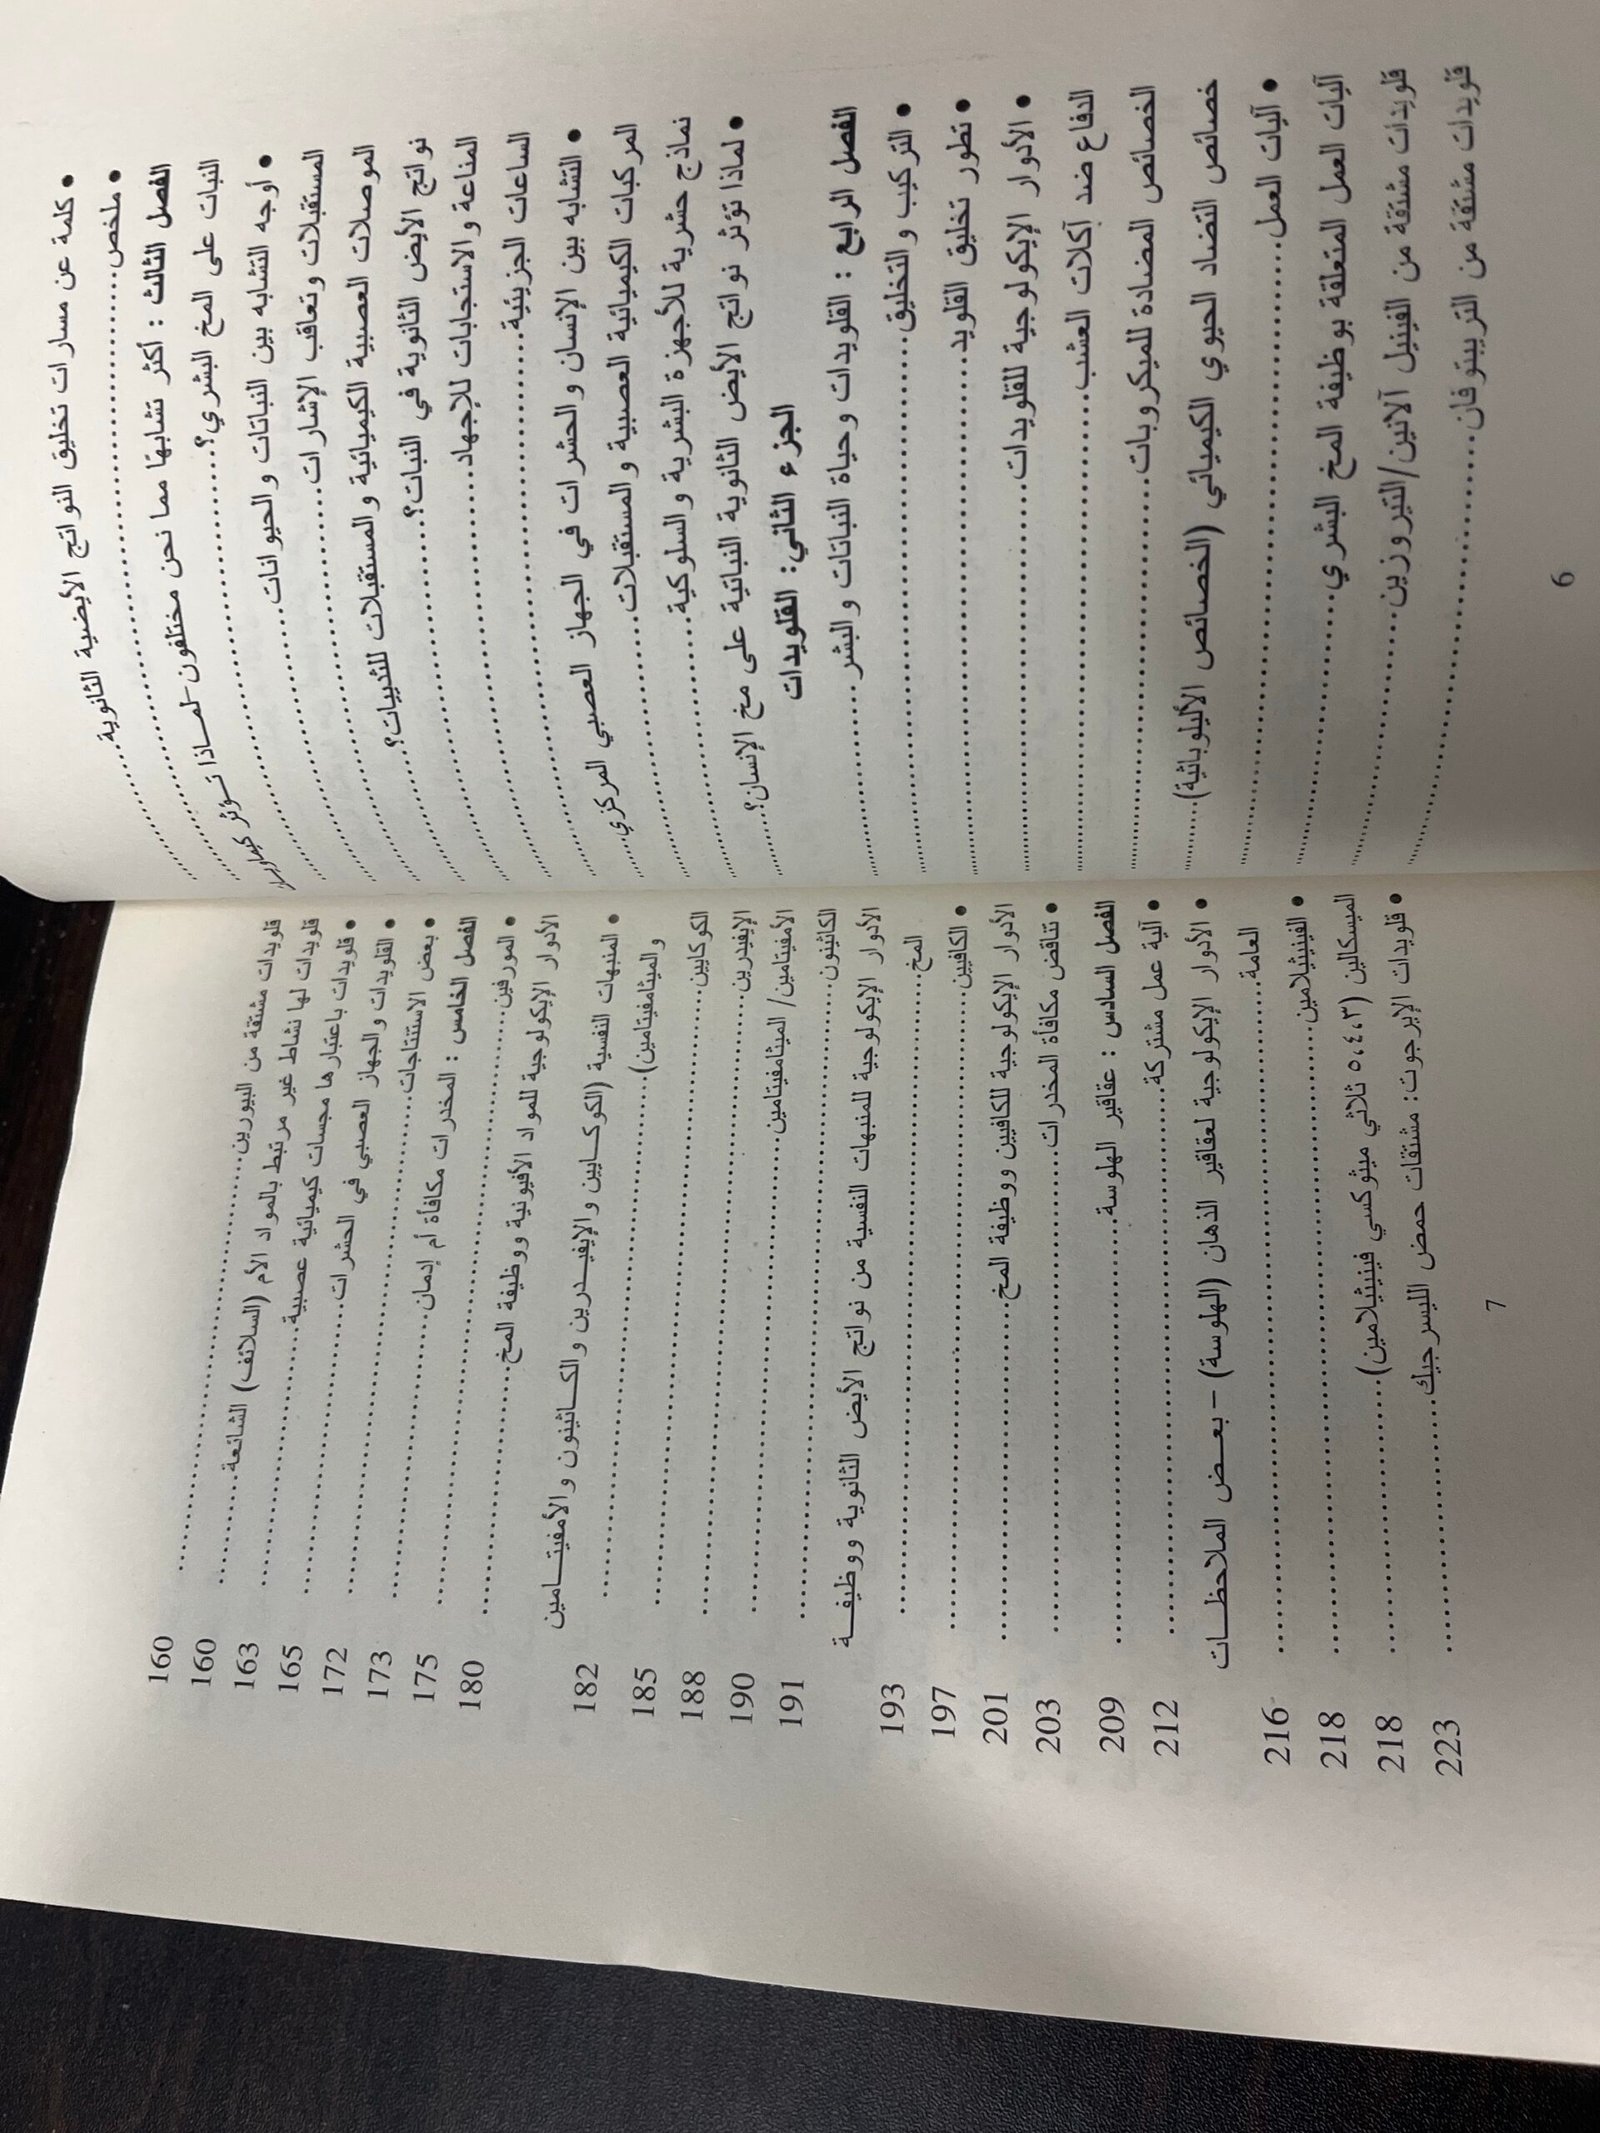 • كلمة عن مسارات تخليق النواتج الأيضية الثانوية
• ملخص
الفصل الثالث : أكثر تشابهًا مما نحن مختلفون–لماذا تؤثر كيمياويات
النبات على المخ البشري؟
• أوجه التشابه بين النباتات والحيوانات
المستقبلات وتعاقب الإشارات
الموصلات العصبية الكيميائية والمستقبلات للثدييات؟
نواتج الأيض الثانوية في النبات؟
المناعة والاستجابات للإجهاد
الساعات الجزيئية
• التشابه بين الإنسان والحشرات في الجهاز العصبي المركزي
المركبات الكيميائية العصبية والمستقبلات
نماذج حشرية للأجهزة البشرية والسلوكية
• لماذا تؤثر نواتج الأيض الثانوية النباتية على مخ الإنسان؟
الجزء الثاني: القلويدات
الفصل الرابع : القلويدات وحياة النباتات والبشر
• التركيب والتخليق
• تطور تخليق القلويد
• الأدوار الإيكولوجية للقلويدات
الدفاع ضد آكلات العشب
الخصائص المضادة للميكروبات
خصائص التضاد الحيوي الكيميائي (الخصائص الأليلوباثية)
• آليات العمل
آليات العمل المتعلقة بوظيفة المخ البشري
قلويدات مشتقة من الفينيل آلانين/التيروزين
قلويدات مشتقة من التريبتوفان
6
قلويدات مشتقة من البيورين 160
قلويدات لها نشاط غير مرتبط بالمواد الأم (السلائف) الشائعة 160
• قلويدات باعتبارها مجسات كيميائية عصبية 163
• القلويدات والجهاز العصبي في الحشرات 165
• بعض الاستنتاجات 172
الفصل الخامس : المخدرات مكافأة أم إدمان 173
• المورفين 175
الأدوار الإيكولوجية للمواد الأفيونية ووظيفة المخ 180
• المنبهات النفسية (الكوكايين والإيفيدرين والكاثينون والأمفيتامين
والميثامفيتامين) 182
الكوكايين 185
الإيفيدرين 188
الأمفيتامين/ الميثامفيتامين 190
الكاثينون 191
الأدوار الإيكولوجية للمنبهات النفسية من نواتج الأيض الثانوية ووظيفة
المخ 193
• الكافيين 197
الأدوار الإيكولوجية للكافيين ووظيفة المخ 201
• تناقض مكافأة المخدرات 203
الفصل السادس : عقاقير الهلوسة 209
• آلية عمل مشتركة 212
• الأدوار الإيكولوجية لعقاقير الذهان (الهلوسة) – بعض الملاحظات
العامة 216
• الفينيثيلامين 218
الميسكالين (٣،٤،٥ ثلاثي ميثوكسي فينيثيلامين) 218
• قلويدات الإيرجوت: مشتقات حمض الليسرجيك 223
7